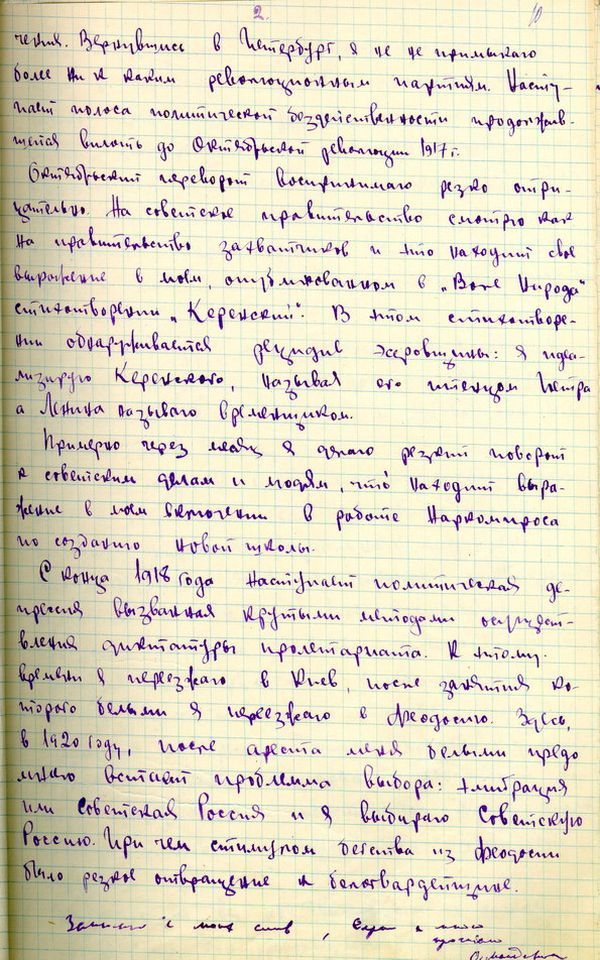 2.
10
чения. Вернувшись в Петербург, я не не примыкаю
более ни к каким революционным партиям. Насту-
пает полоса политической бездейственности продолжав-
шейся вплоть до Октябрьской революции 1917 г.
Октябрьский переворот воспринимаю резко отри-
цательно. На советское правительство смотрю как
на правительство захватчиков и это находит свое
выражение в моем, опубликованном в „Воле Народа"
стихотворении „Керенский". В этом стихотворе-
нии обнаруживается рецидив эсеровщины: я идеа-
лизирую Керенского, называя его птенцом Петра
а Ленина называю временщиком.
Примерно через месяц я делаю резкий поворот
к советским делам и людям, что находит выра-
жение в моем включении в работе Наркомпроса
по созданию новой школы.
С конца 1918 года наступает политическая де-
прессия вызванная крутыми методами осуществ-
вления диктатуры пролетариата. К этому
времени я переезжаю в Киев, после занятия ко-
торого белыми я переезжаю в Феодосию. Здесь,
в 1920 году, после ареста меня белыми предо
мною встает проблема выбора: эмиграция
или Советская Россия и я выбираю Советскую
Россию. При чем стимулом бегства из Феодосии
было резкое отвращение к белогвардейщине.
Записано с моих слов, и мною
прочитано